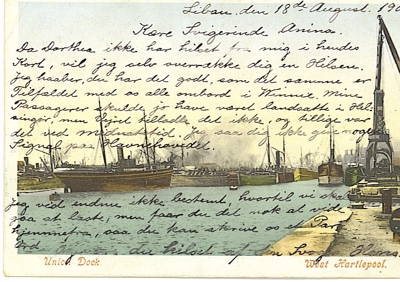 Libau. den 18de August. 190
Kære Svigerinde Anina.
Da Dorthea ikke har hilset fra mig i hendes
Kort, vil jeg selv overrække dig en Hilsen.
Jeg haaber, du har det godt, som det samme er
Tilfældet med os alle ombord i Minnie. Mine
Passagerer skulde jo have været landsatte i Hel-
singør, men Vejret tillodte det ikke, og tillige var
det ved Midnatstid. Jeg saa dig ikke give noget
Signal paa Havnehovedet.
Jeg ved endnu ikke bestemt, hvortil vi skal
gaa at laste; men faar du det nok at vide
hjemmefra, saa du kan skrive os et Par
Ord du hilset af en Svoger
Union Dock
West Hartlepool.